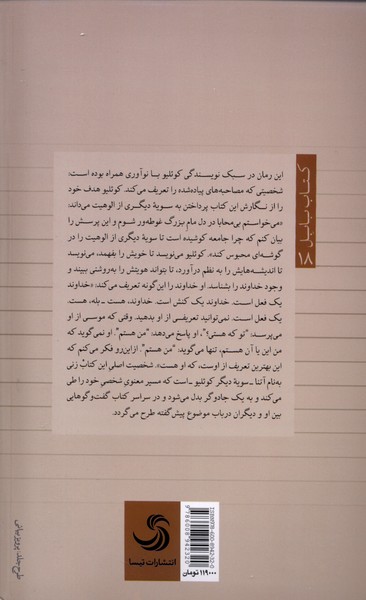 کتاب بابل
۱۸
این رمان در سبک نویسندگی کوئلیو با نوآوری همراه بوده است:
شخصیتی که مصاحبه‌های پیاده‌شده را تعریف می‌کند. کوئلیو هدف خود
را از نگارش این کتاب پرداختن به سویهٔ دیگری از الوهیت می‌داند:
«می‌خواستم بی‌محابا در دل مامِ بزرگ غوطه‌ور شوم و این پرسش را
بیان کنم که چرا جامعه کوشیده است تا سویهٔ دیگری از الوهیت را در
گوشه‌ای محبوس کند». کوئلیو می‌نویسد تا خویش را بفهمد، می‌نویسد
تا اندیشه‌هایش را به نظم درآورد، تا بتواند هویتش را به‌روشنی ببیند و
وجود خداوند را بشناسد. او خداوند را این‌گونه تعریف می‌کند: «خداوند
یک فعل است. خداوند یک کنش است. خداوند، هست ـ بله، هست.
یک فعل است. نمی‌توانید تعریفی از او بدهید. وقتی که موسی از او
می‌پرسد: "تو که هستی؟"، او پاسخ می‌دهد: "من هستم". او نمی‌گوید که
من این یا آن هستم، تنها می‌گوید: "من هستم". ازاین‌رو فکر می‌کنم که
این بهترین تعریف از اوست، که او هست». شخصیت اصلی این کتابْ زنی
به‌نام آتنا ـ سویهٔ دیگر کوئلیو ـ است که مسیر معنوی شخصیِ خود را طی
می‌کند و به یک جادوگر بدل می‌شود و در سراسر کتاب گفت‌وگوهایی
بین او و دیگران درباب موضوع پیش‌گفته طرح می‌گردد.
طرح جلد: پرویز بیانی
ISBN978-600-8942-32-0
9786008942320
انتشارات تیسا
۱۱۹۰۰۰ تومان